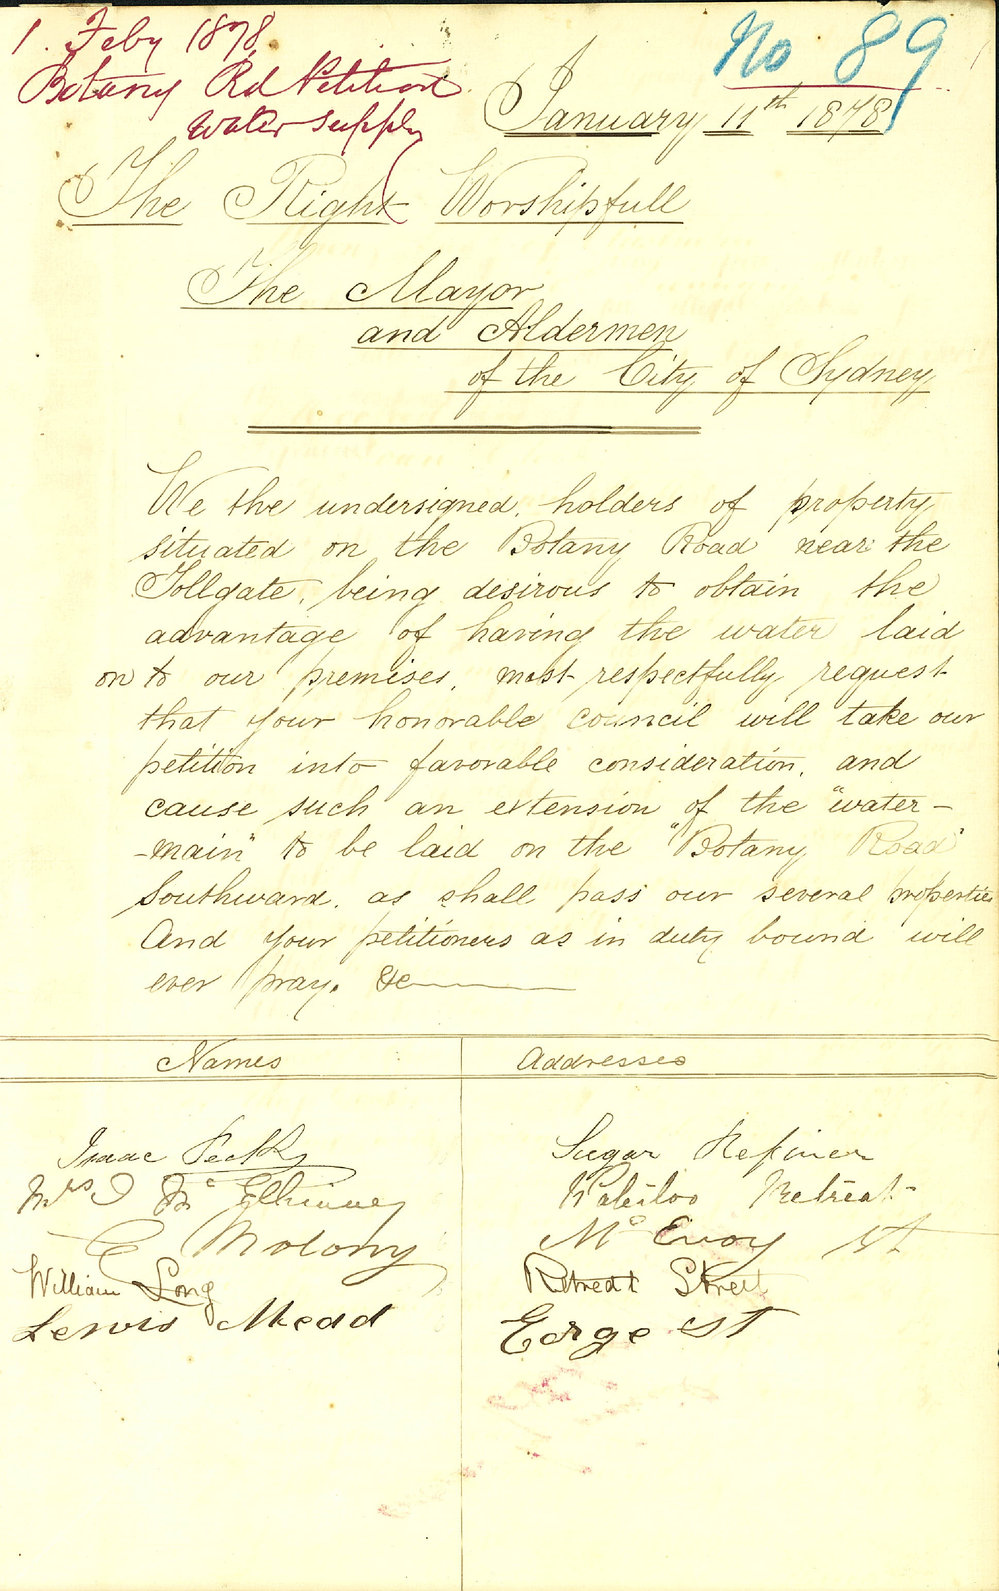 1. Feby 1878
Botany Rd Petition
water supply
No 89
January 11th 1878
The Right Worshipfull
The Mayor
and Aldermen
of the City of Sydney
We the undersigned, holders of property
situated on the Botany Road near the
Tollgate, being desirous to obtain the
advantage of having the water laid
on to our premises, most respectfully request
that your honorable council will take our
petition into favorable consideration, and
cause such an extension of the "water-
-main" to be laid on the "Botany Road"
Southward, as shall pass our several properties
And your petitioners as in duty bound will
ever pray. &c
Names Addresses
Isaac Peck Sugar Refiner
Mrs Mc Elhinney Retreat
Molony Mc Evoy st
William Long Retreat Street
Lewis Mead Eorge ST